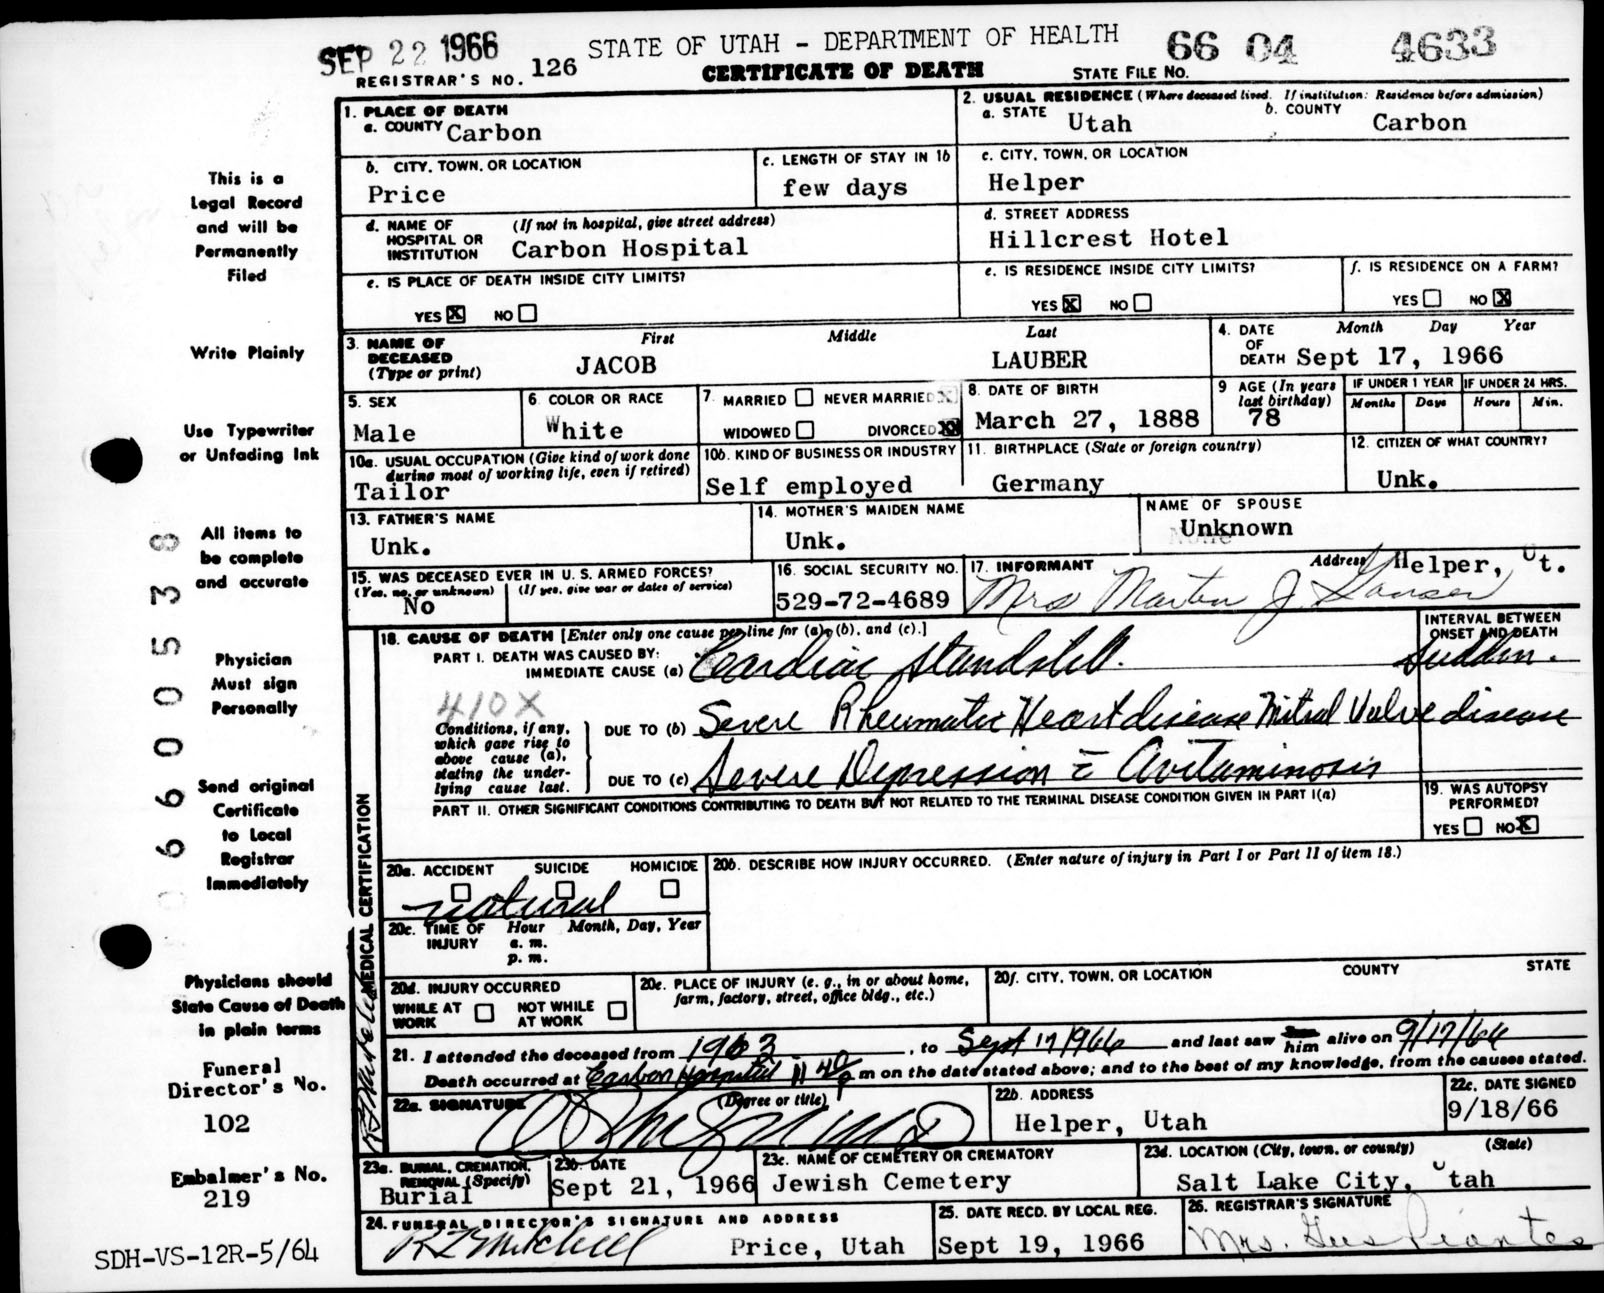 SEP 22 1966
STATE OF UTAH - DEPARTMENT OF HEALTH
66 04 4633
REGISTRAR'S NO. 126
CERTIFICATE OF DEATH
STATE FILE NO.
1. PLACE OF DEATH
a. COUNTY Carbon
2. USUAL RESIDENCE (Where deceased lived. If institution: Residence before admission)
a. STATE Utah
b. COUNTY Carbon
b. CITY, TOWN, OR LOCATION
Price
c. LENGTH OF STAY IN 1b
few days
c. CITY, TOWN, OR LOCATION
Helper
d. NAME OF HOSPITAL OR INSTITUTION (If not in hospital, give street address)
Carbon Hospital
d. STREET ADDRESS
Hillcrest Hotel
e. IS PLACE OF DEATH INSIDE CITY LIMITS?
YES X NO
e. IS RESIDENCE INSIDE CITY LIMITS?
YES X NO
f. IS RESIDENCE ON A FARM?
YES NO X
3. NAME OF DECEASED (Type or print)
First Middle Last
JACOB LAUBER
4. DATE OF DEATH Month Day Year
Sept 17, 1966
5. SEX
Male
6. COLOR OR RACE
White
7. MARRIED NEVER MARRIED X
WIDOWED DIVORCED XX
8. DATE OF BIRTH
March 27, 1888
9 AGE (In years last birthday)
78
IF UNDER 1 YEAR
Months Days
IF UNDER 24 HRS.
Hours Min.
10a. USUAL OCCUPATION (Give kind of work done during most of working life, even if retired)
Tailor
10b. KIND OF BUSINESS OR INDUSTRY
Self employed
11. BIRTHPLACE (State or foreign country)
Germany
12. CITIZEN OF WHAT COUNTRY?
Unk.
13. FATHER'S NAME
Unk.
14. MOTHER'S MAIDEN NAME
Unk.
NAME OF SPOUSE
Unknown
None
15. WAS DECEASED EVER IN U. S. ARMED FORCES?
(Yes, no, or unknown) (If yes, give war or dates of service)
No
16. SOCIAL SECURITY NO.
529-72-4689
17. INFORMANT Address Helper, Ut.
Mrs Martin J.
18. CAUSE OF DEATH [Enter only one cause per line for (a), (b), and (c).]
INTERVAL BETWEEN ONSET AND DEATH
PART I. DEATH WAS CAUSED BY:
IMMEDIATE CAUSE (a) Cardiac standstill. Sudden.
410X
Conditions, if any, which gave rise to above cause (a), stating the underlying cause last.
DUE TO (b) Severe Rheumatic Heart disease Mitral Valve disease
DUE TO (c) Severe Depression c̄ Avitaminosis
PART II. OTHER SIGNIFICANT CONDITIONS CONTRIBUTING TO DEATH BUT NOT RELATED TO THE TERMINAL DISEASE CONDITION GIVEN IN PART I(a)
19. WAS AUTOPSY PERFORMED?
YES NO X
20a. ACCIDENT SUICIDE HOMICIDE
natural
20b. DESCRIBE HOW INJURY OCCURRED. (Enter nature of injury in Part I or Part II of item 18.)
20c. TIME OF INJURY Hour Month, Day, Year
a. m.
p. m.
20d. INJURY OCCURRED
WHILE AT WORK NOT WHILE AT WORK
20e. PLACE OF INJURY (e. g., in or about home, farm, factory, street, office bldg., etc.)
20f. CITY, TOWN, OR LOCATION COUNTY STATE
21. I attended the deceased from 1963, to Sept 17 1966 and last saw him alive on 9/17/66
Death occurred at Carbon Hospital 11 40 p m on the date stated above; and to the best of my knowledge, from the causes stated.
22a. SIGNATURE (Degree or title)
22b. ADDRESS
Helper, Utah
22c. DATE SIGNED
9/18/66
23a. BURIAL, CREMATION, REMOVAL (Specify)
Burial
23b. DATE
Sept 21, 1966
23c. NAME OF CEMETERY OR CREMATORY
Jewish Cemetery
23d. LOCATION (City, town, or county) (State)
Salt Lake City, Utah
24. FUNERAL DIRECTOR'S SIGNATURE AND ADDRESS
R L Mitchell Price, Utah
25. DATE RECD. BY LOCAL REG.
Sept 19, 1966
26. REGISTRAR'S SIGNATURE
Mrs. Gus Piantes
MEDICAL CERTIFICATION
This is a
Legal Record
and will be
Permanently
Filed
Write Plainly
Use Typewriter
or Unfading Ink
All items to
be complete
and accurate
Physician
Must sign
Personally
Send original
Certificate
to Local
Registrar
Immediately
Physicians should
State Cause of Death
in plain terms
Funeral
Director's No.
102
Embalmer's No.
219
SDH-VS-12R-5/64
06600538